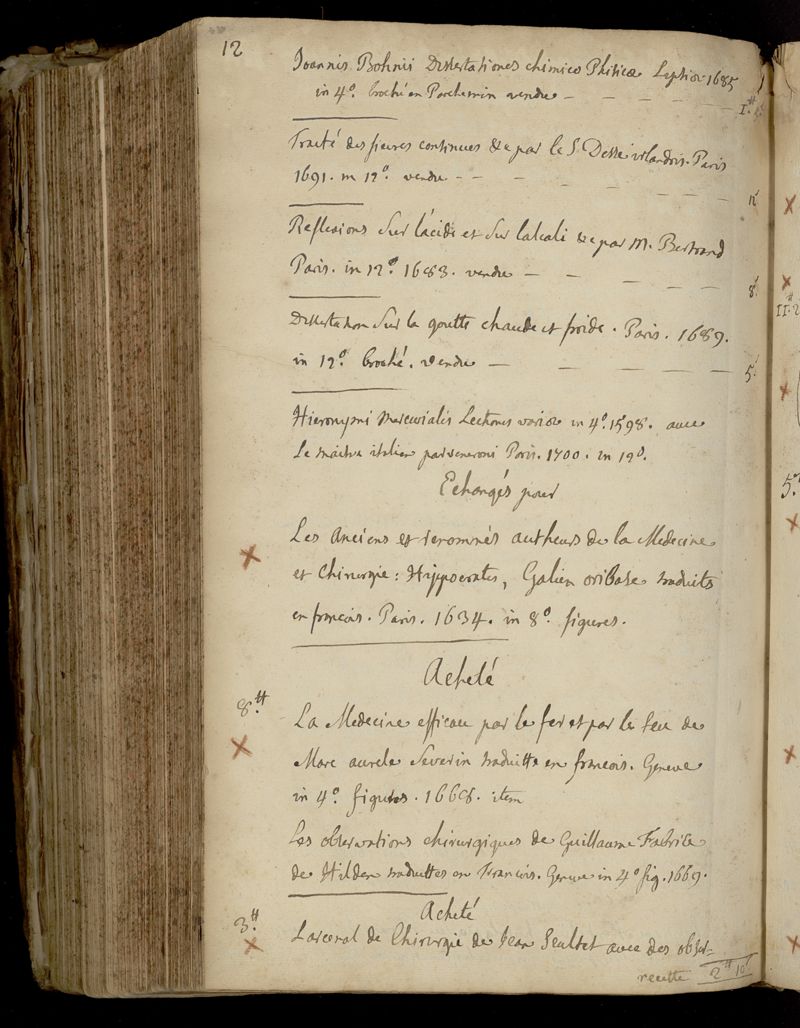 12
Joannis Bohnii Dissertationes chimico Phisicæ Lepsiæ 1685
in 4º. broché en Parchemin vendu — — — — — 1.ᵗᵗ
Traité des fievres continues &c par le S. Desse irlandois. Paris
1691. in 12º. vendu — — — — — — —
Reflexions Sur l'acide et Sur lalcali &c par M. Bertrand
Paris. in 12º. 1683. vendu — — — — — 8ˢ
Dissertation Sur la goutte chaude et froide. Paris. 1689.
in 12º. broché. vendu — — — — — 5ˢ
Hieronymi Mercurialis Lectiones variæ in 4º. 1598. avec
Le maitre italien par veneroni Paris. 1700. in 12º.
Echangés pour
Les Anciens et renommés autheurs de la Medecine
et Chirurgie: Hippocrates, Galien oribase traduits
en francois. Paris. 1634. in 8º. figures.
Acheté
8.ᵗᵗ
La Medecine efficace par le fer et par le feu de
Marc aurele Severin traduitte en francois. Geneve
in 4º. figures. 1668. item
Les observations chirurgiques de Guillaume Fabrice
de Hilden traduittes en Francois. Geneve in 4º fig. 1669.
Acheté
3.ᵗᵗ
Larcenal de Chirurgie de Jean Scultet avec des obser-
recette 2ᵗᵗ 10ˢ
11.ᵗᵗ 2
5.ᵗᵗ